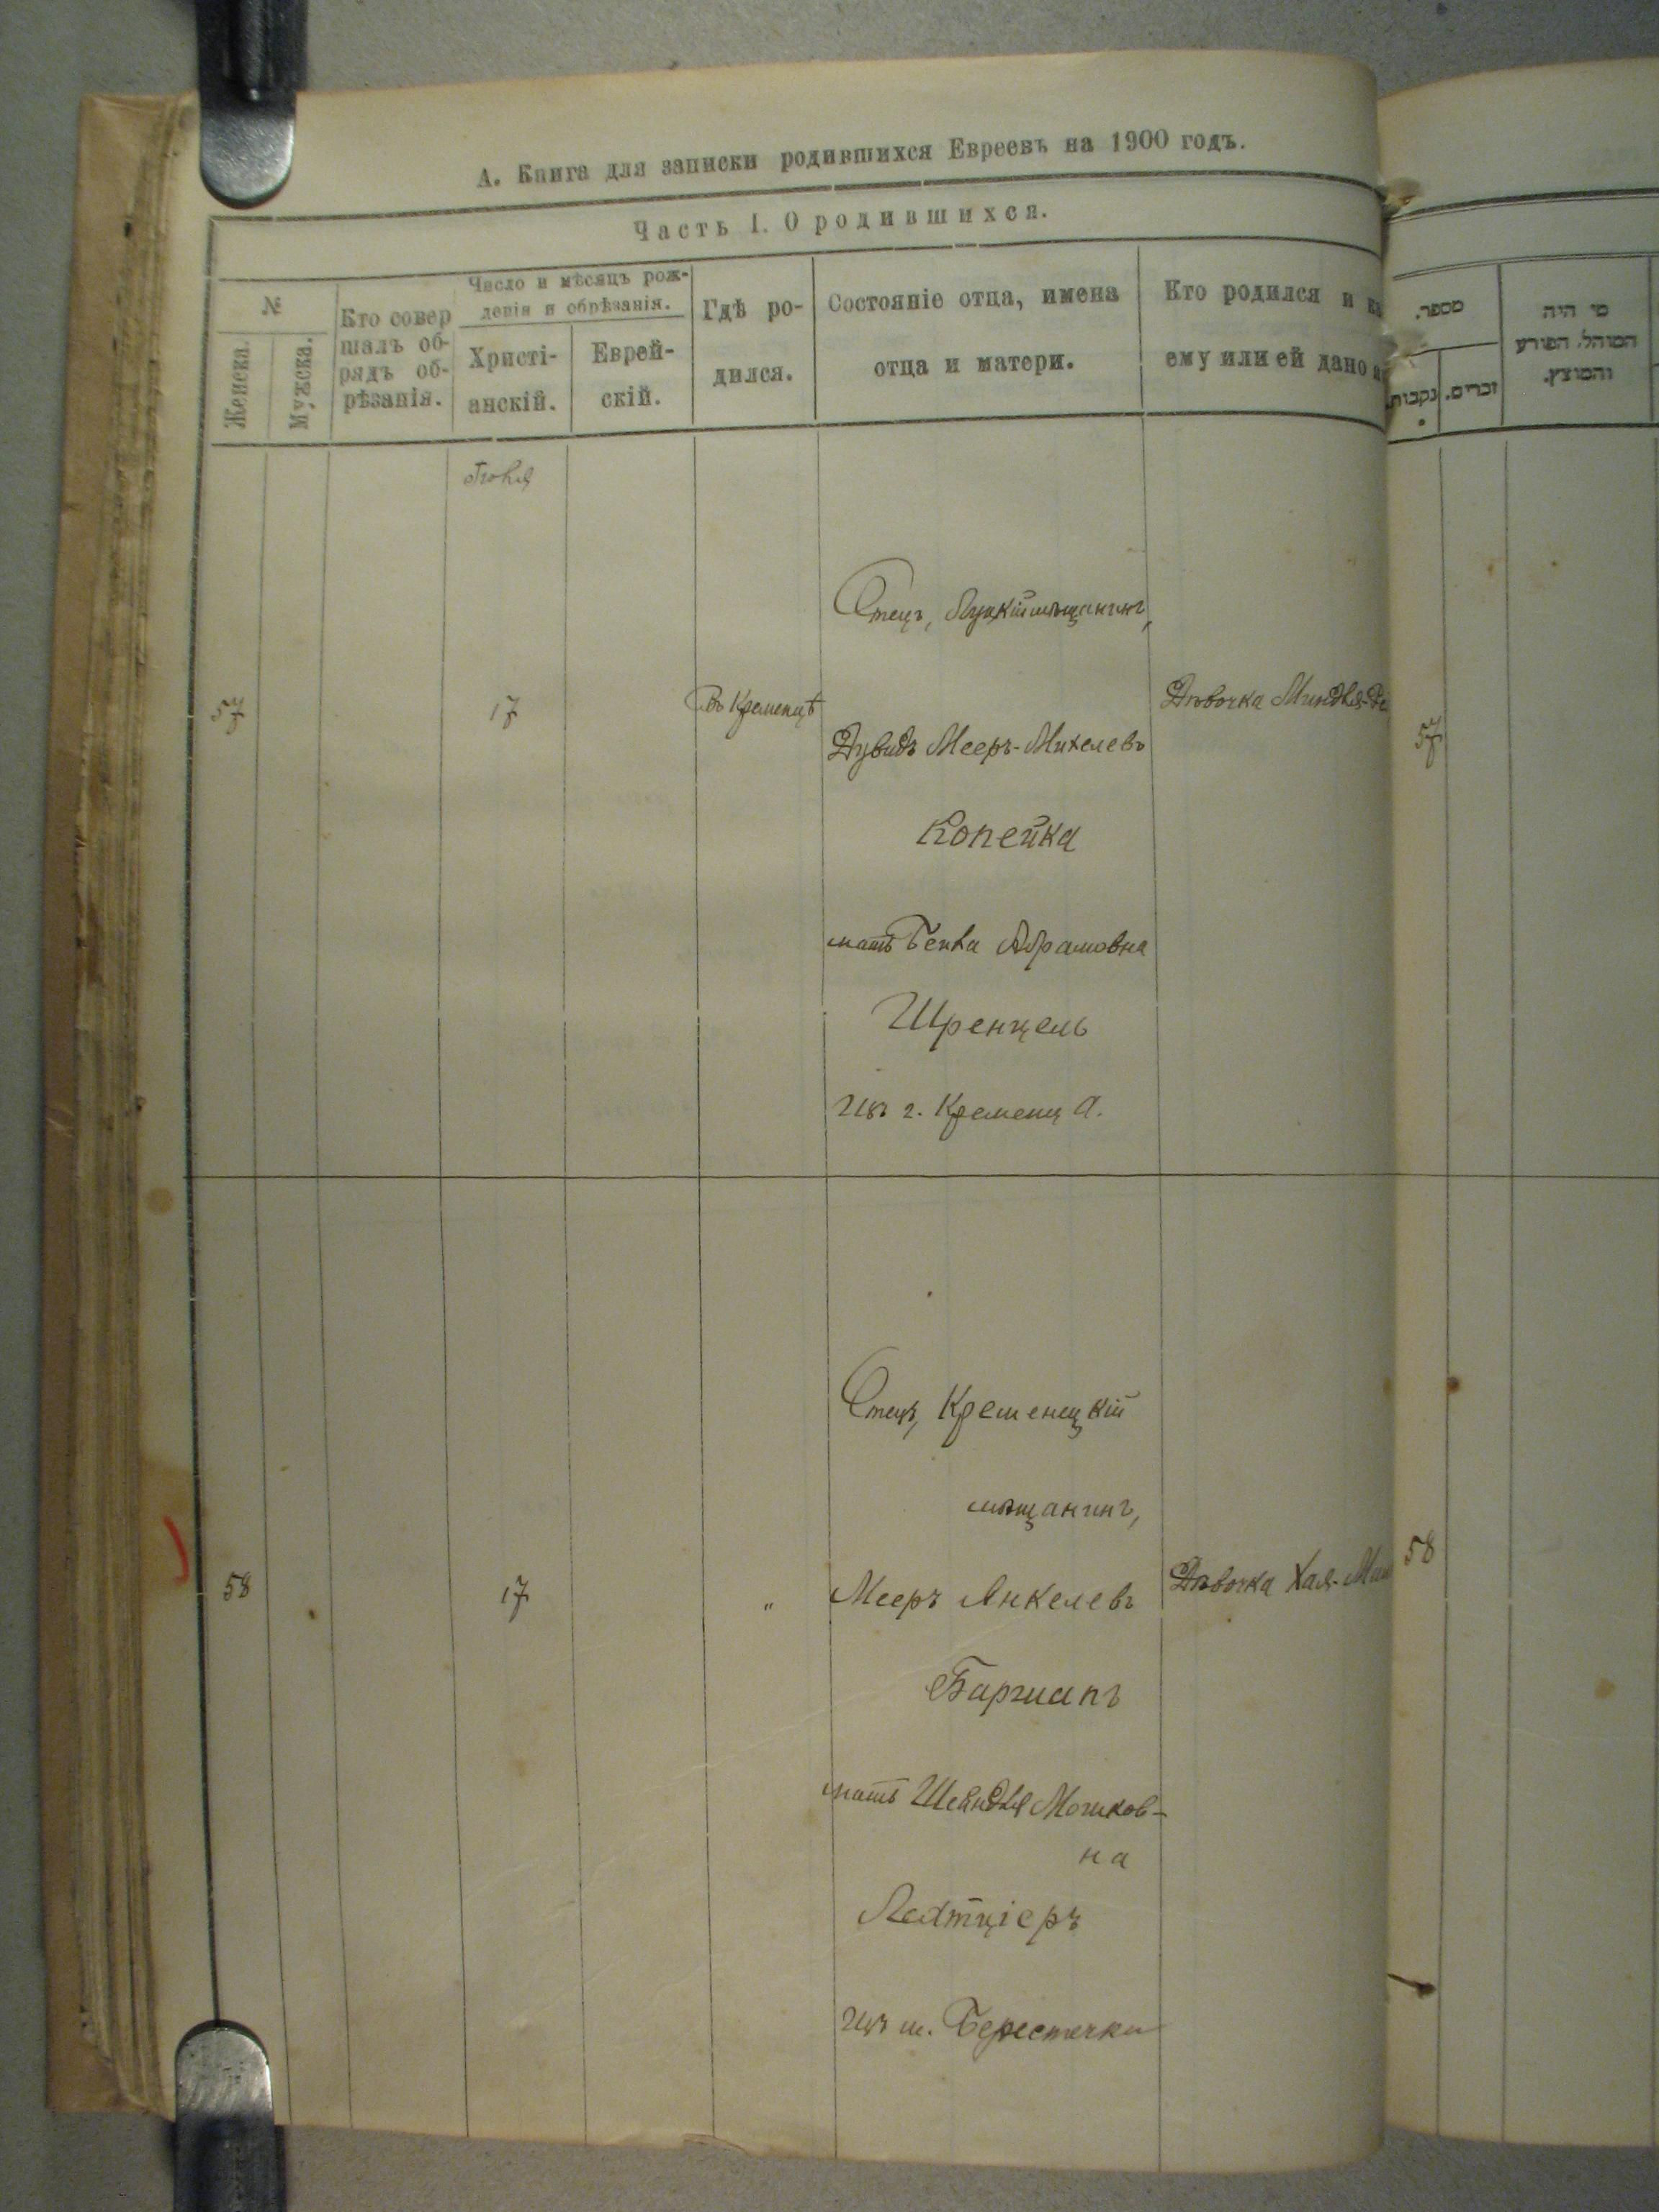 А. Книга для записки родившихся Евреевъ на 1900 годъ.
Часть I. О родившихся.
№
Женска.
Мужска.
Кто совер
шалъ об-
рядъ об-
рѣзанія.
Число и мѣсяцъ рож-
денія и обрѣзанія.
Христі-
анскій.
Еврей-
скій.
Гдѣ ро-
дился.
Состояніе отца, имена
отца и матери.
Кто родился и
ему или ей дано
מספר.
נקבות.
זכרים.
מי היה
המוהל, הפורע
והמוצץ.
57
17
Въ Кременцѣ
Отецъ, Луцкій мѣщанинъ,
Дувидъ Мееръ-Михелевъ
Копейка
мать Бенва Абрамовна
Шренцель
Изъ г. Кременца.
Дѣвочка Миндля-
57
58
17
"
Отецъ, Кременецкій
мѣщанинъ,
Мееръ Янкелевъ
мать Шейндля Мошков-
на
Изъ м. Берестечки
Дѣвочка Хая-
58